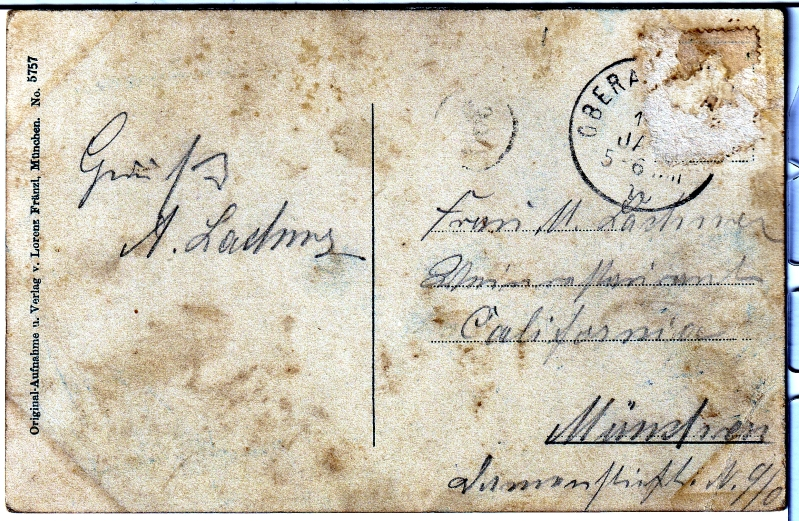 Original-Aufnahme u. Verlag v. Lorenz Fränzl, München. No. 5757
Gruß
A. Lachner
OBERA
JA
5-6
Frau M. Lachner
Weinrestaurant
California
München
Damenstiftstr.